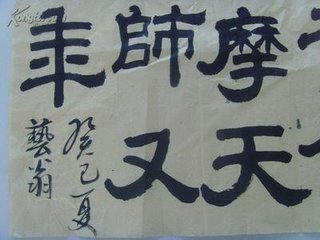 摩天
師又
年
癸巳夏
藝翁